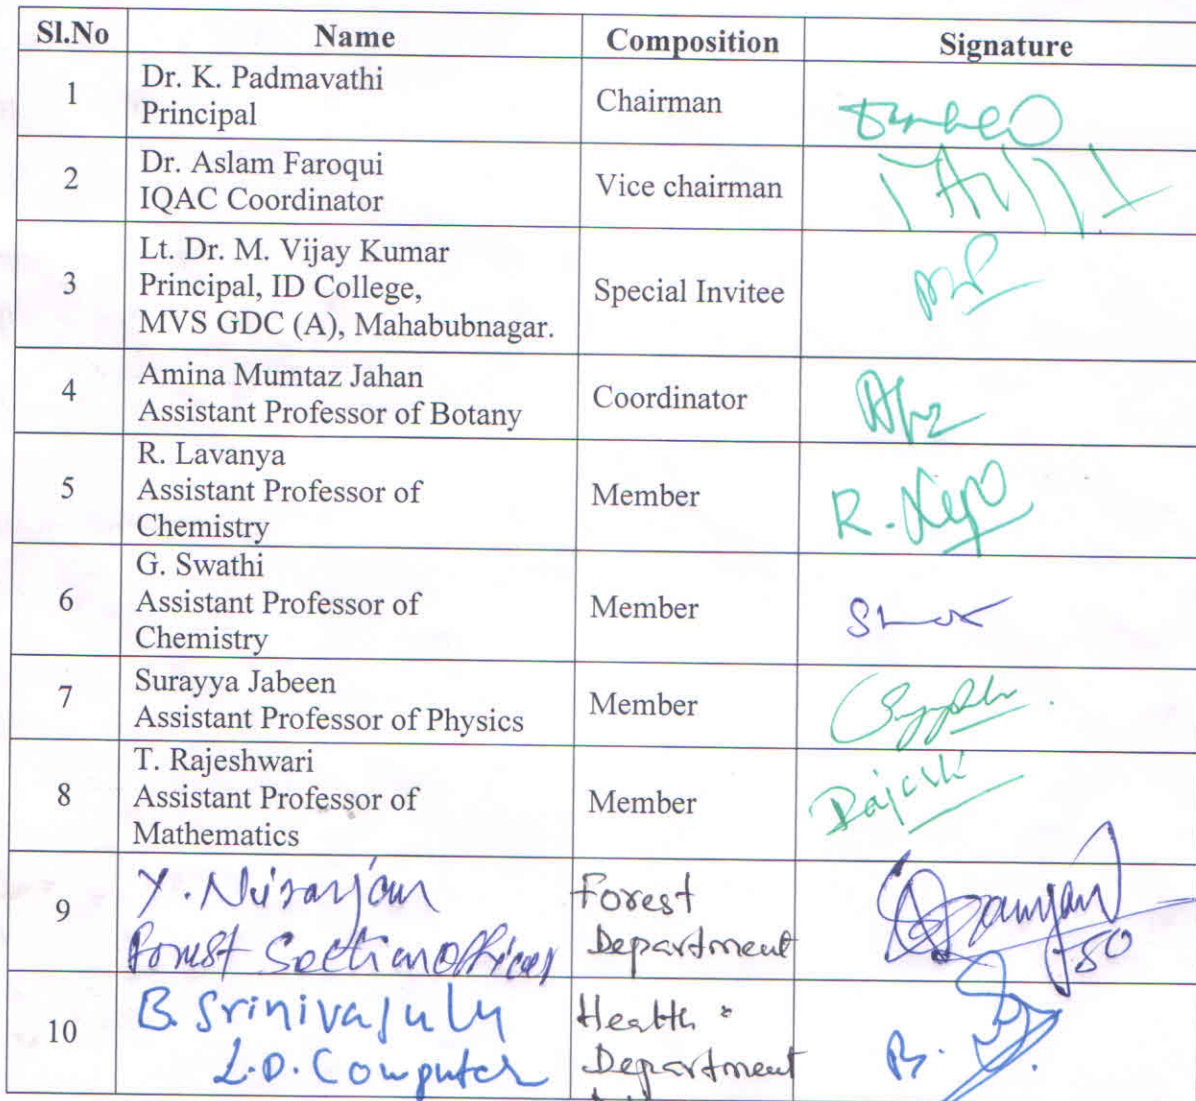 Sl.No Name Composition Signature
1 Dr. K. Padmavathi
Principal Chairman
2 Dr. Aslam Faroqui
IQAC Coordinator Vice chairman
3 Lt. Dr. M. Vijay Kumar
Principal, ID College,
MVS GDC (A), Mahabubnagar. Special Invitee
4 Amina Mumtaz Jahan
Assistant Professor of Botany Coordinator
5 R. Lavanya
Assistant Professor of
Chemistry Member R.
6 G. Swathi
Assistant Professor of
Chemistry Member
7 Surayya Jabeen
Assistant Professor of Physics Member
8 T. Rajeshwari
Assistant Professor of
Mathematics Member
9 Y. Niranjan Forest
Forest Section officer Department FSO
10 B. Srinivasulu Health
L.D. Computer Department B.